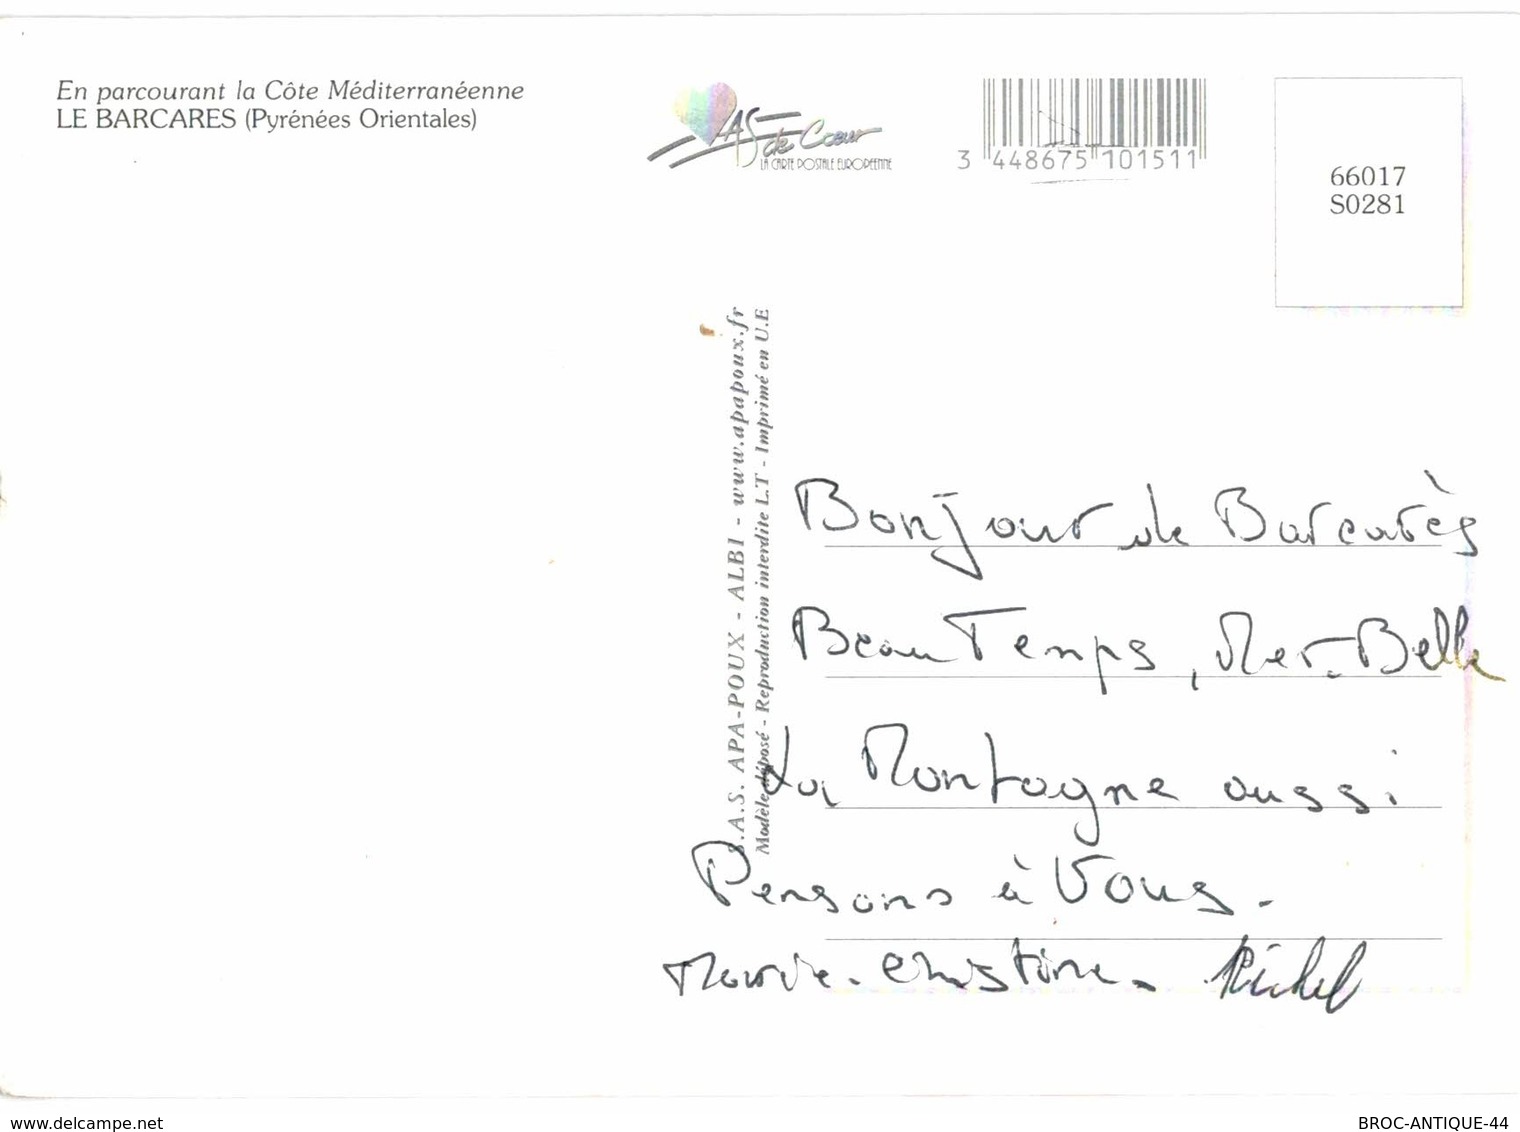 En parcourant la Côte Méditerranéenne
LE BARCARES (Pyrénées Orientales)
AS de Cœur
LA CARTE POSTALE EUROPÉENNE
3 448675 101511
66017
S0281
S.A.S. APA-POUX - ALBI - www.apapoux.fr
Modèle déposé - Reproduction interdite L.T - Imprimé en U.E
Bonjour de Barcarès
Beau Temps, Mer Belle
La Montagne aussi
Pensons à Vous.
Marie-Christine - Michel
www.delcampe.net
BROC-ANTIQUE-44